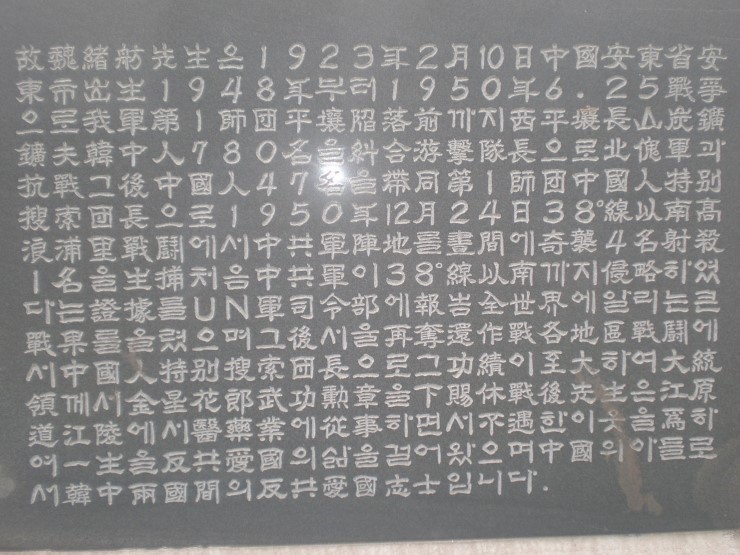 故魏緖舫先生은1923年2月10日中國安東省安
東市出生1948年부터1950年6.25戰爭
으로我軍第1師団平壤陷落前까지西平壤長山炭鑛
鑛夫韓中人780名을糾合游擊隊長으로北傀軍과
抗戰그後中國人47名을帶同第1師団中國人特別
搜索団長으로1950年12月24日38°線以南高
浪浦里戰鬪에서中共軍陣地를晝間에奇襲4名射殺
1名을生捕처음中共軍이38°線以南까지侵略하였
다는證據를UN軍司令部에報告全世界에알리는큰
戰果를올렸으며그後서울再奪還作戰各地區戰鬪에
서中國人特別搜索団長으로그功績이至大하여大統
領께서金星花郎武功勳章을下賜休戰後先生은江原
道江陵에서醫藥業에從事하면서不遇한이웃을爲하
여一生을反共愛國의삶을걸어왔으며中國의아들로
서韓中兩國間의反共愛國志士입니다.